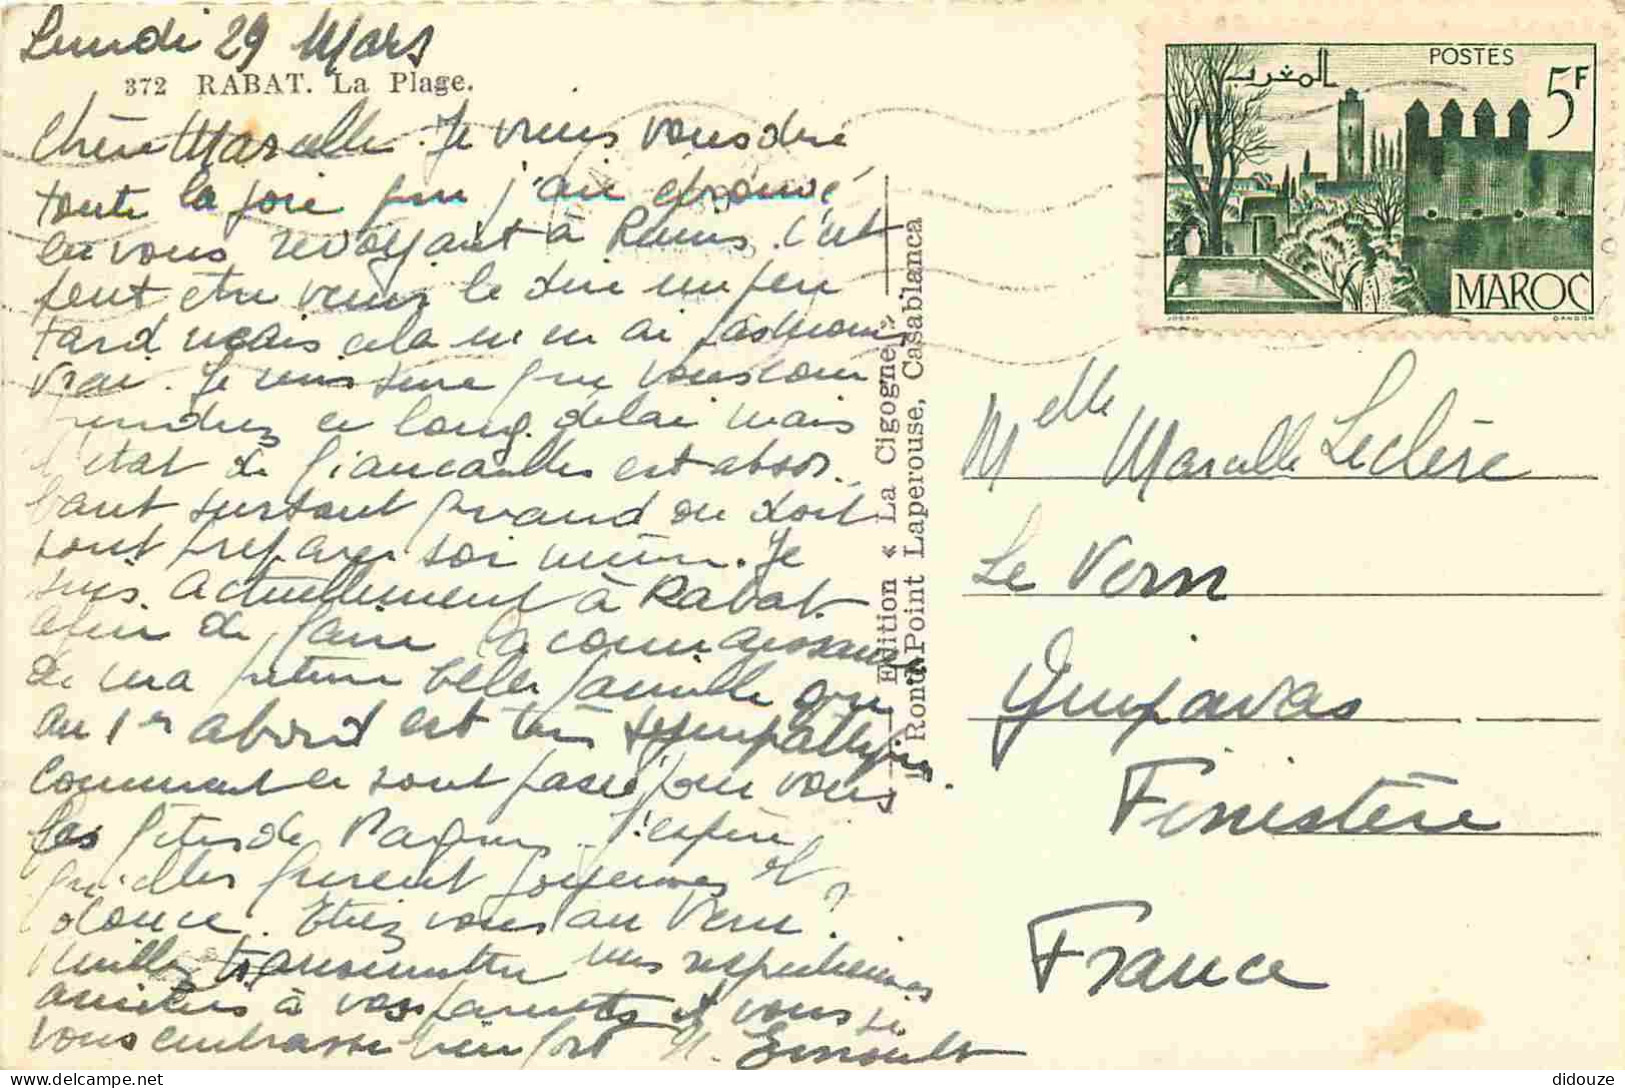 Lundi 29 Mars
372 RABAT. La Plage.
Chère Marcelle. Je veux vous dire
toute la joie que j'ai éprouvé
en vous revoyant à Reims. C'est
peut être venir le dire un peu
tard mais cela n'en ai pas moins
vrai. Je suis sûre que vous com
prendrez ce long délai mais
l'état de fiancailles est absor-
bant surtout quand on doit
tout préparer soi même. Je
suis actuellement à Rabat
afin de faire la connaissance
de ma future belle famille qui
au 1er abord est très sympathique
comment ce sont passé pour vous
les fêtes de Pâques. J'espère
qu'elles furent joyeuses et
douce. Etiez vous au Vern?
Veuillez transmettre mes respectueuses
amitiés à vos parents et vous je
vous embrasse bien fort
Edition « La Cigogne »
Rond-Point Laperouse, Casablanca
POSTES
المغرب
5F
MAROC
Melle Marcelle Leclère
Le Vern
Guipavas
Finistère
France
didouze